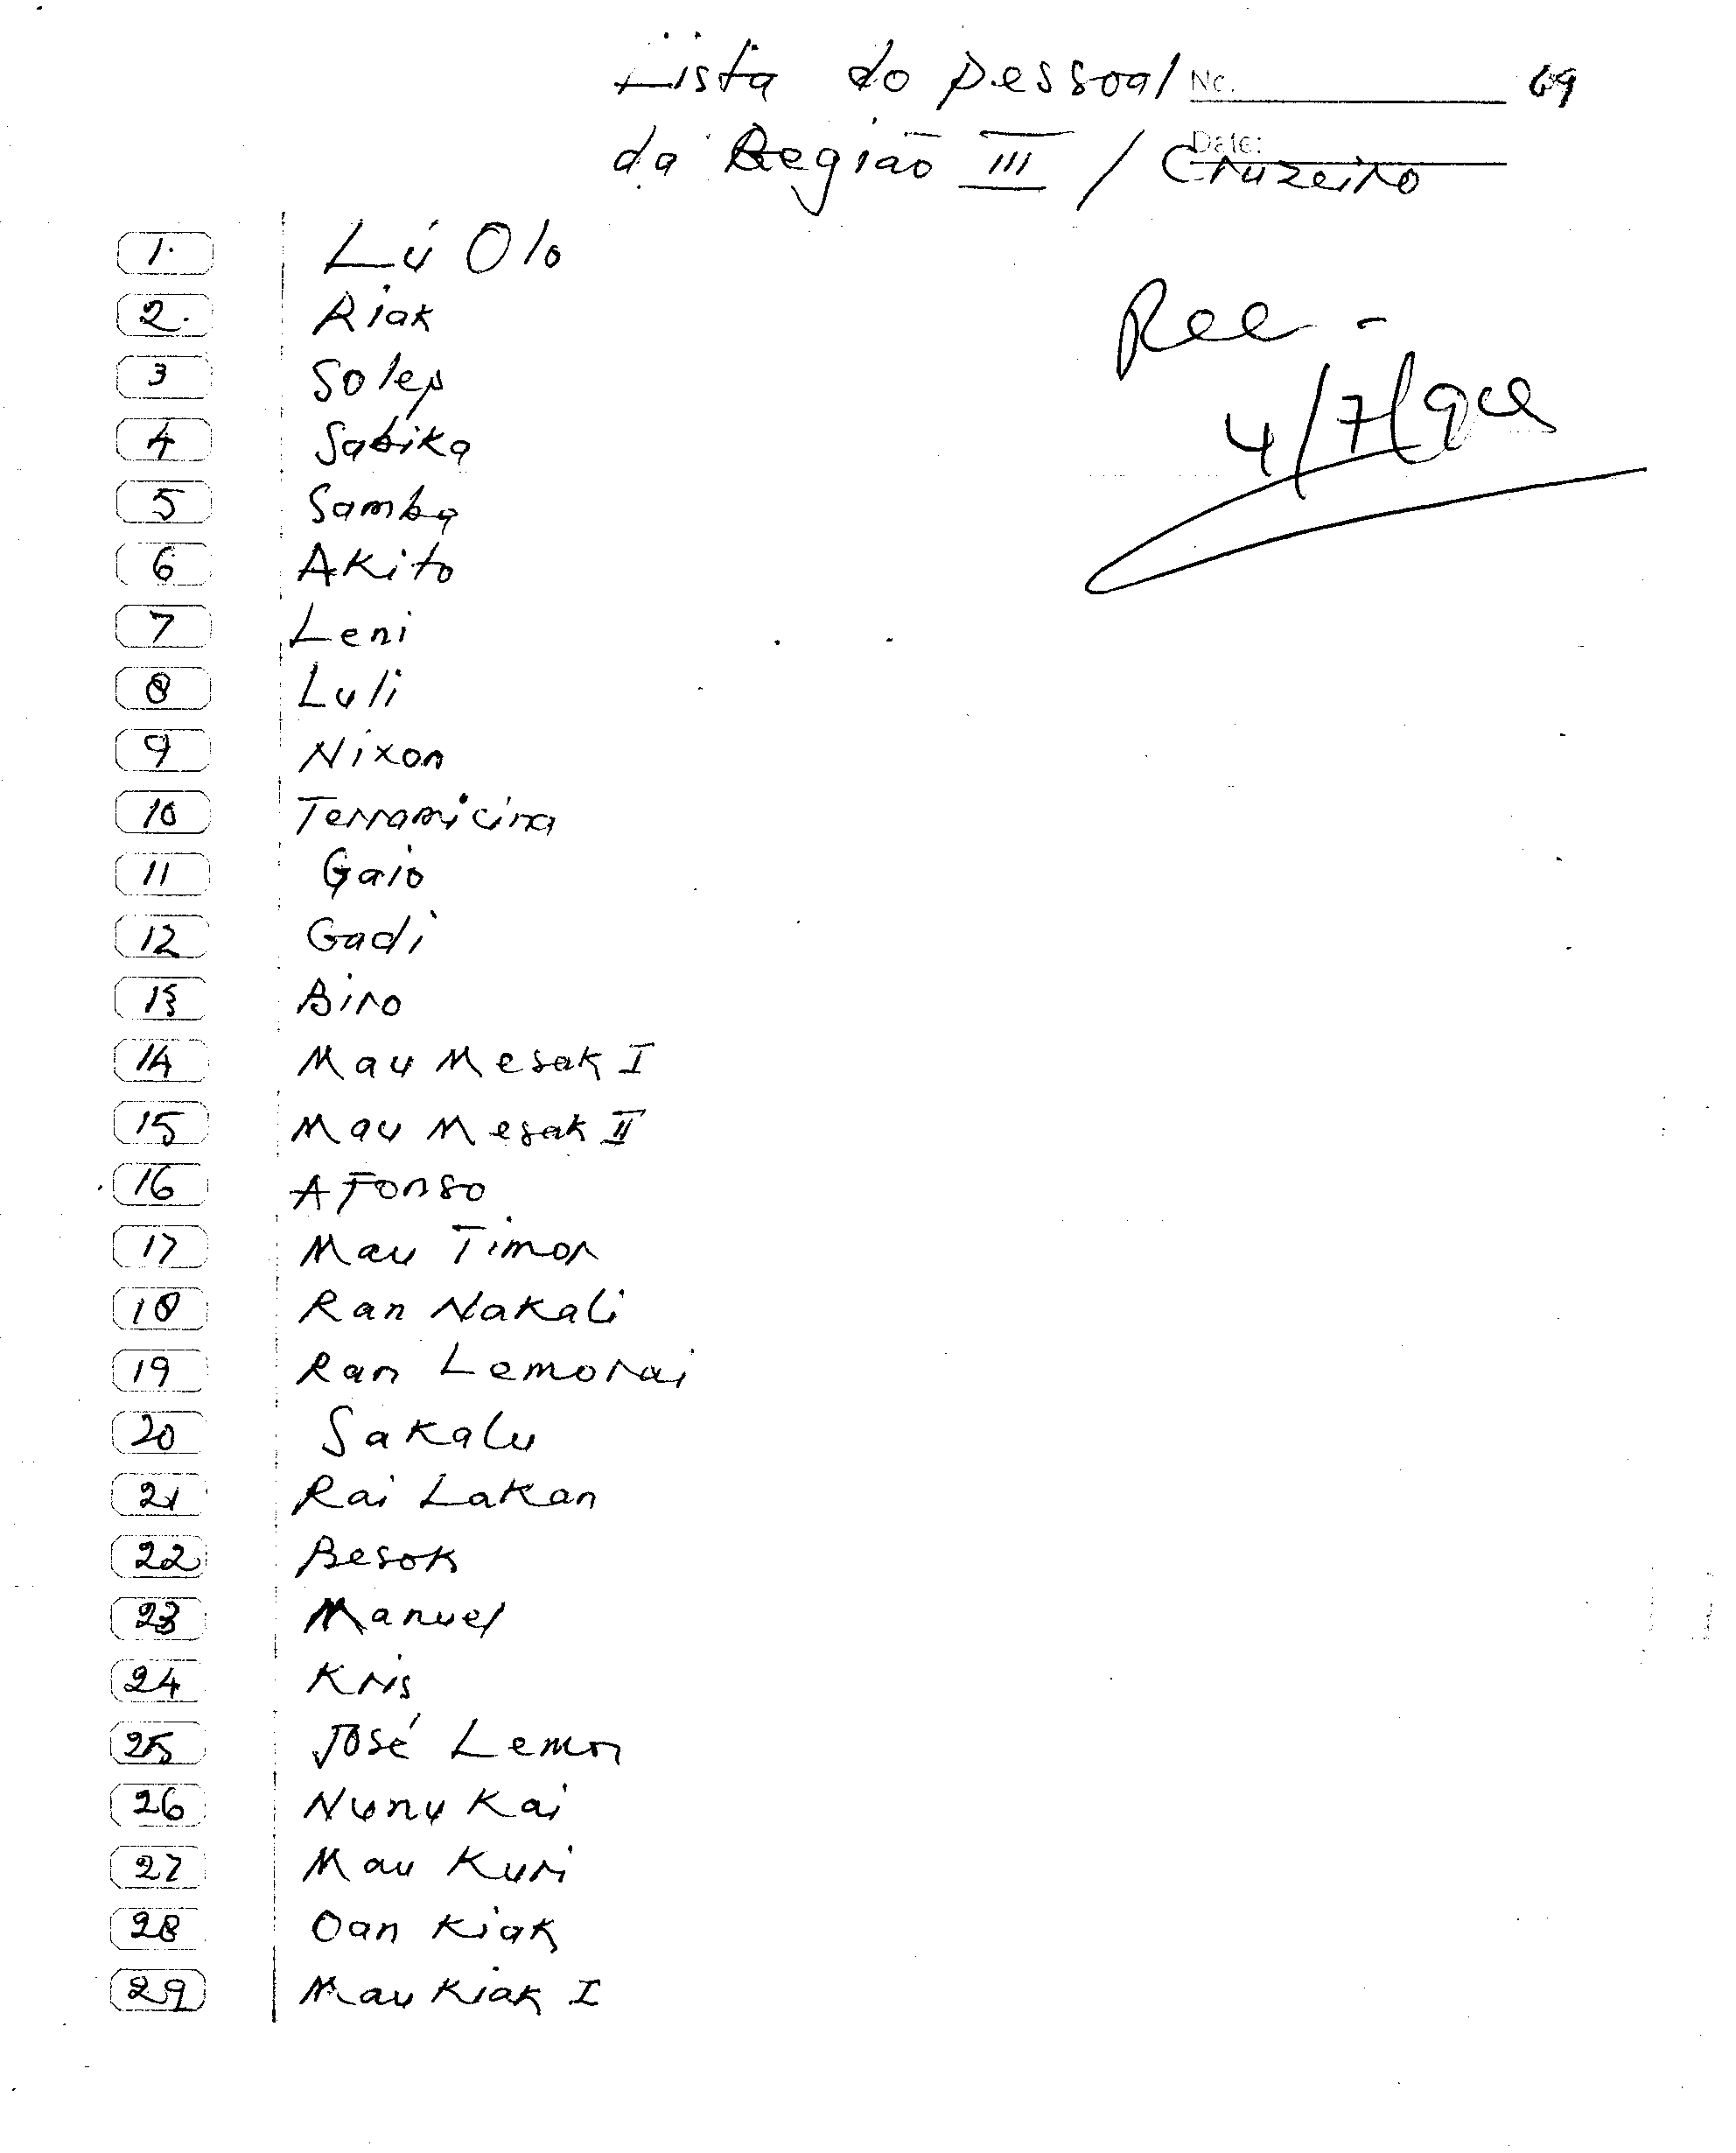 Lista do pessoal No. 69
da Região III / Cruzeiro Date:
1. Lú Olo
Rec -
4/7/98
2. Riak
3 Soler
4 Sabika
5 Samba
6 Akito
7 Leni
8 Luli
9 Nixon
10 Terramicina
11 Gaio
12 Gadi
13 Biro
14 Mau Mesak I
15 Mau Mesak II
16 Afonso
17 Mau Timor
18 Ran Nakali
19 Ran Lemorai
20 Sakalu
21 Rai Lakan
22 Besok
23 Manuel
24 Kris
25 José Lemor
26 Nunu Kai
27 Mau Kuri
28 Oan Kiak
29 Mau Kiak I